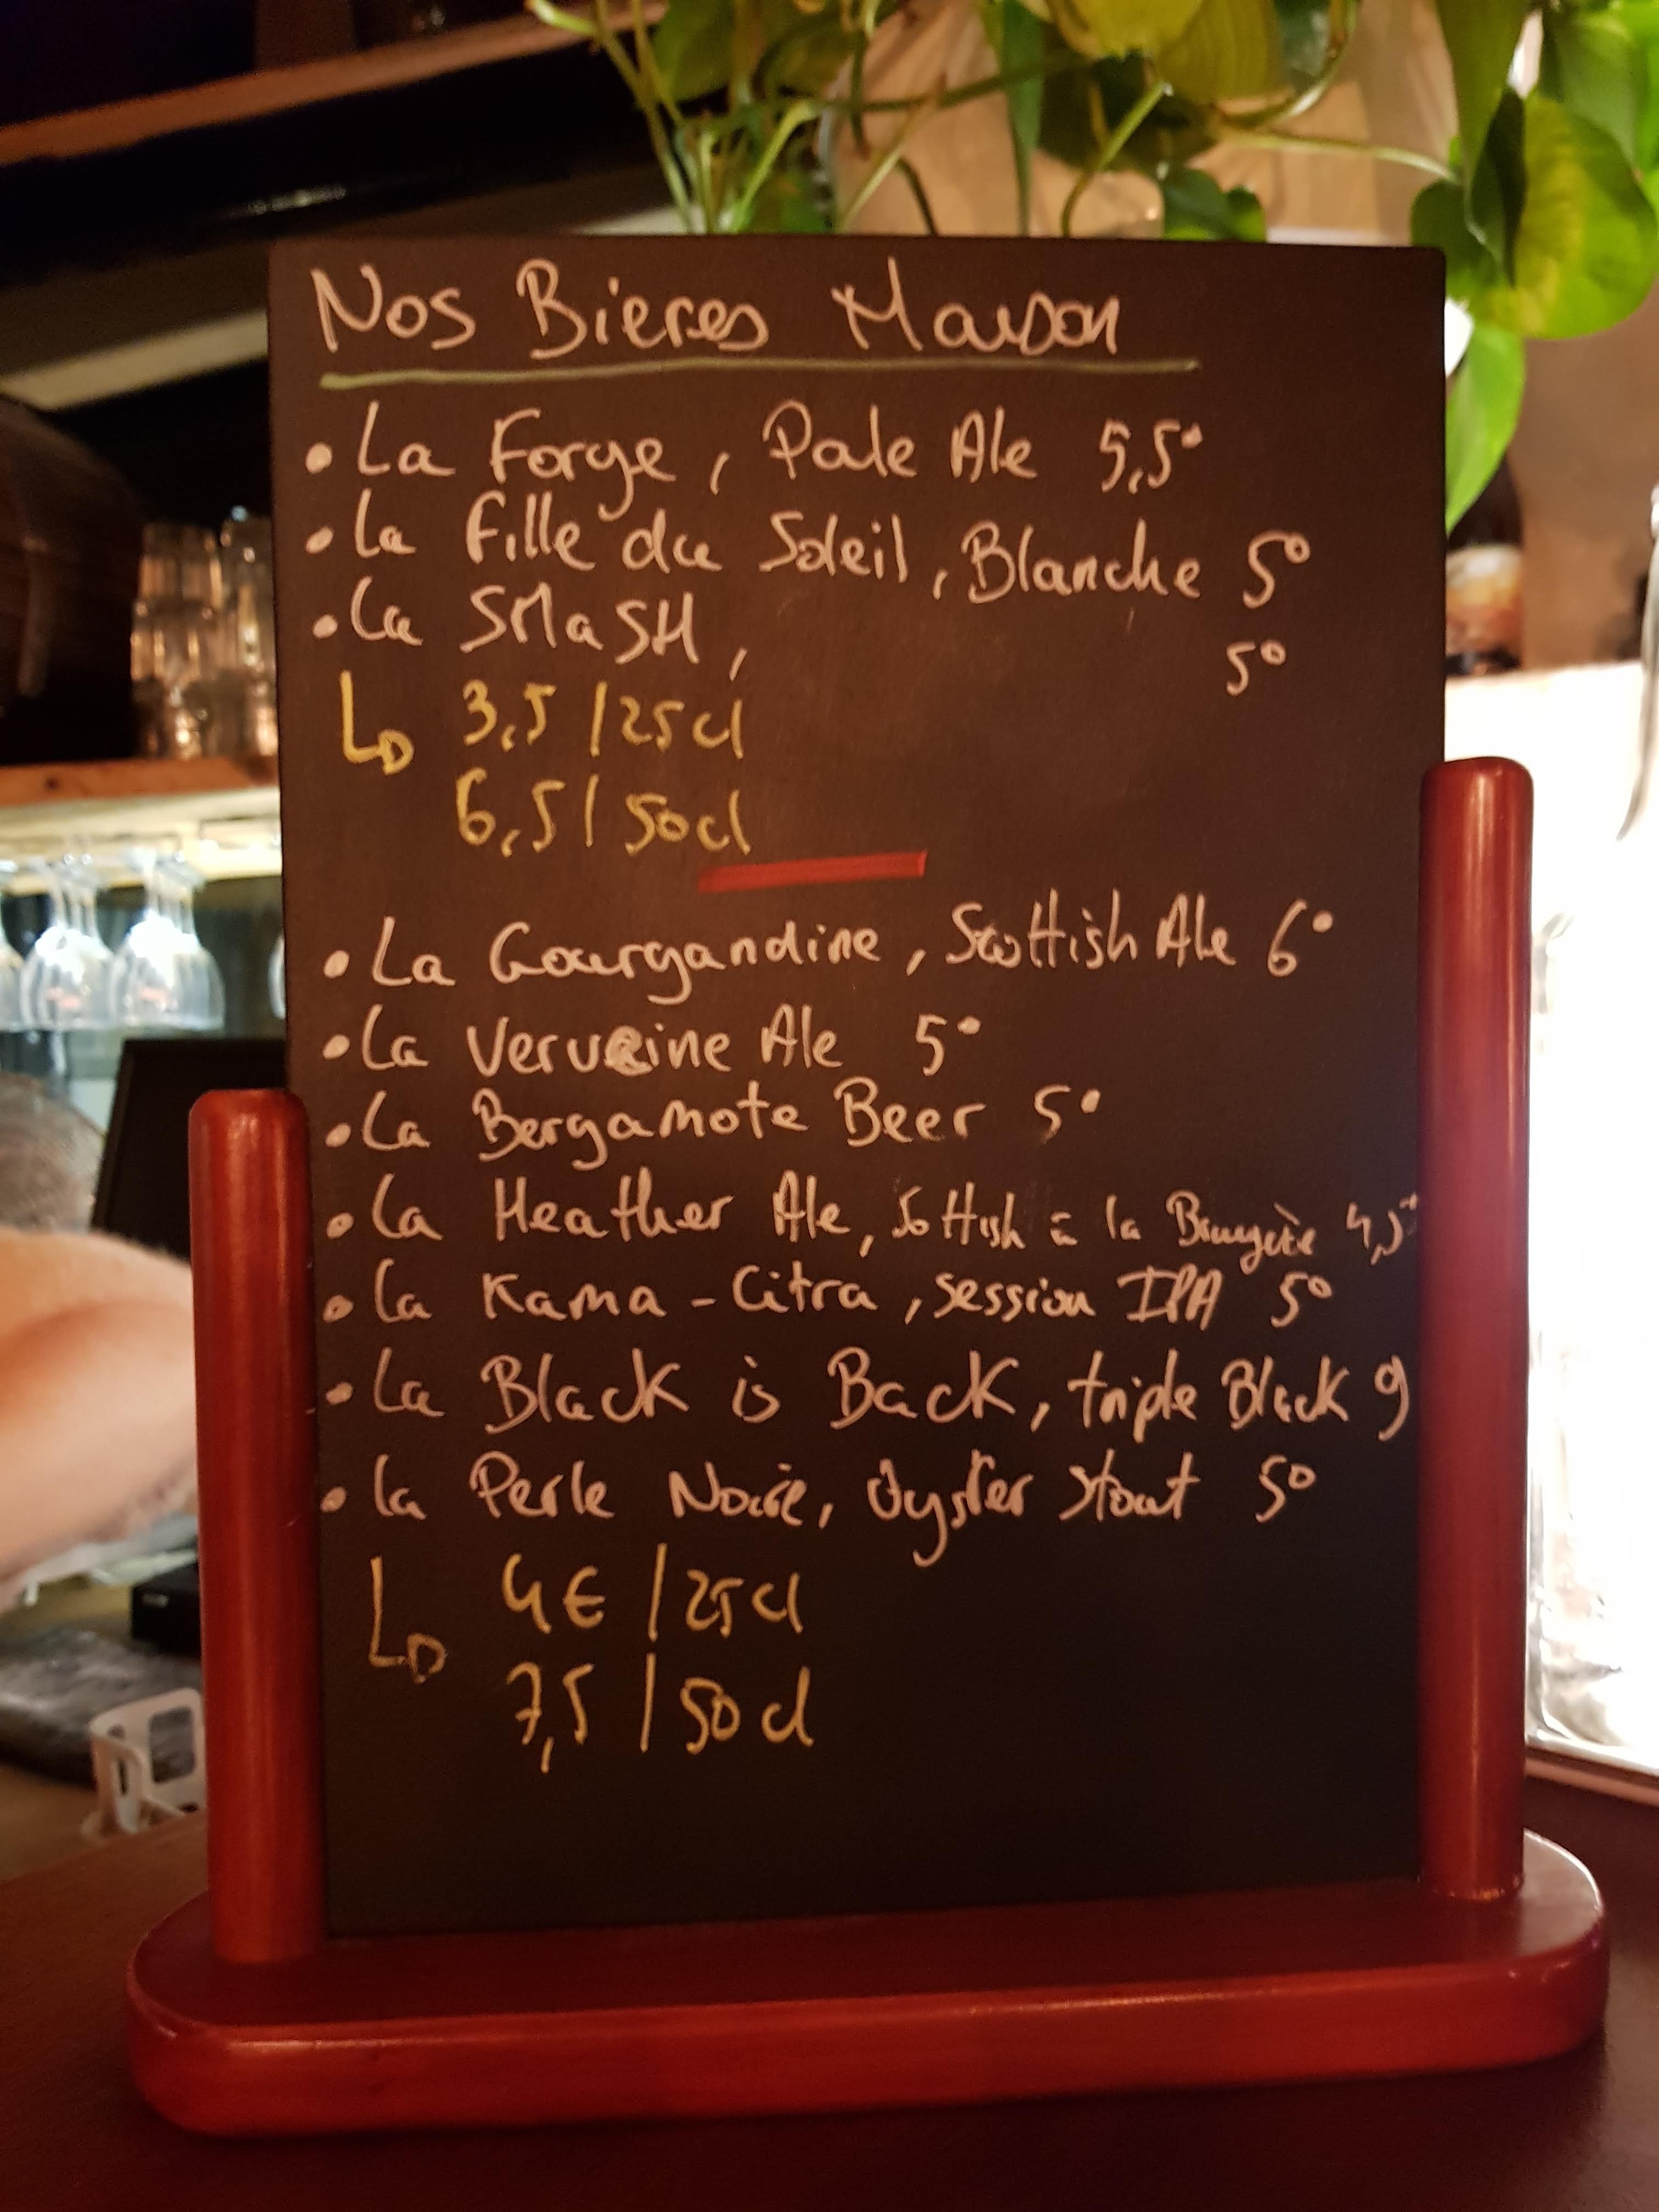 Nos Bieres Maison
• La Forge, Pale Ale 5,5°
• La Fille du Soleil, Blanche 5°
• La SMaSH, 5°
3,5 / 25cl
6,5 / 50cl
• La Gourgandine, Scottish Ale 6°
• La Verveine Ale 5°
• La Bergamote Beer 5°
• La Heather Ale, Scottish à la Bruyère 4,5°
• La Kama-Citra, session IPA 5°
• La Black is Back, triple Black 9
• La Perle Noire, Oyster Stout 5°
4€ / 25cl
7,5 / 50cl